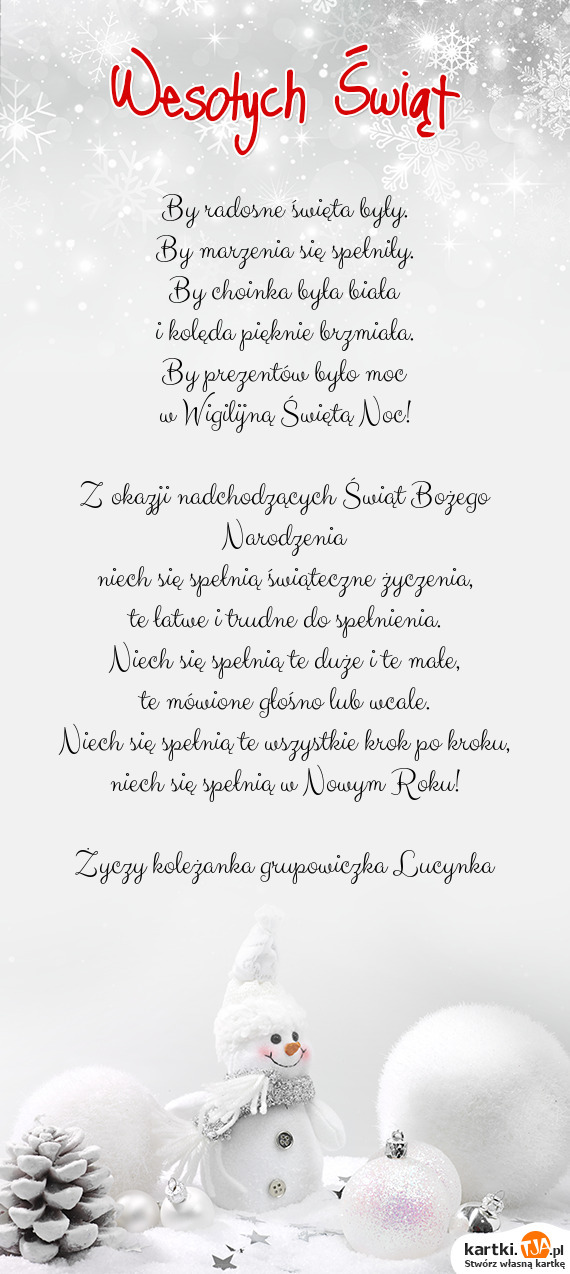 Wesołych Świąt
By radosne święta były.
By marzenia się spełniły.
By choinka była biała
i kolęda pięknie brzmiała.
By prezentów było moc
w Wigilijną Świętą Noc!
Z okazji nadchodzących Świąt Bożego
Narodzenia
niech się spełnią świąteczne życzenia,
te łatwe i trudne do spełnienia.
Niech się spełnią te duże i te małe,
te mówione głośno lub wcale.
Niech się spełnią te wszystkie krok po kroku,
niech się spełnią w Nowym Roku!
Życzy koleżanka grupowiczka Lucynka
kartki.TJA.pl
Stwórz własną kartkę